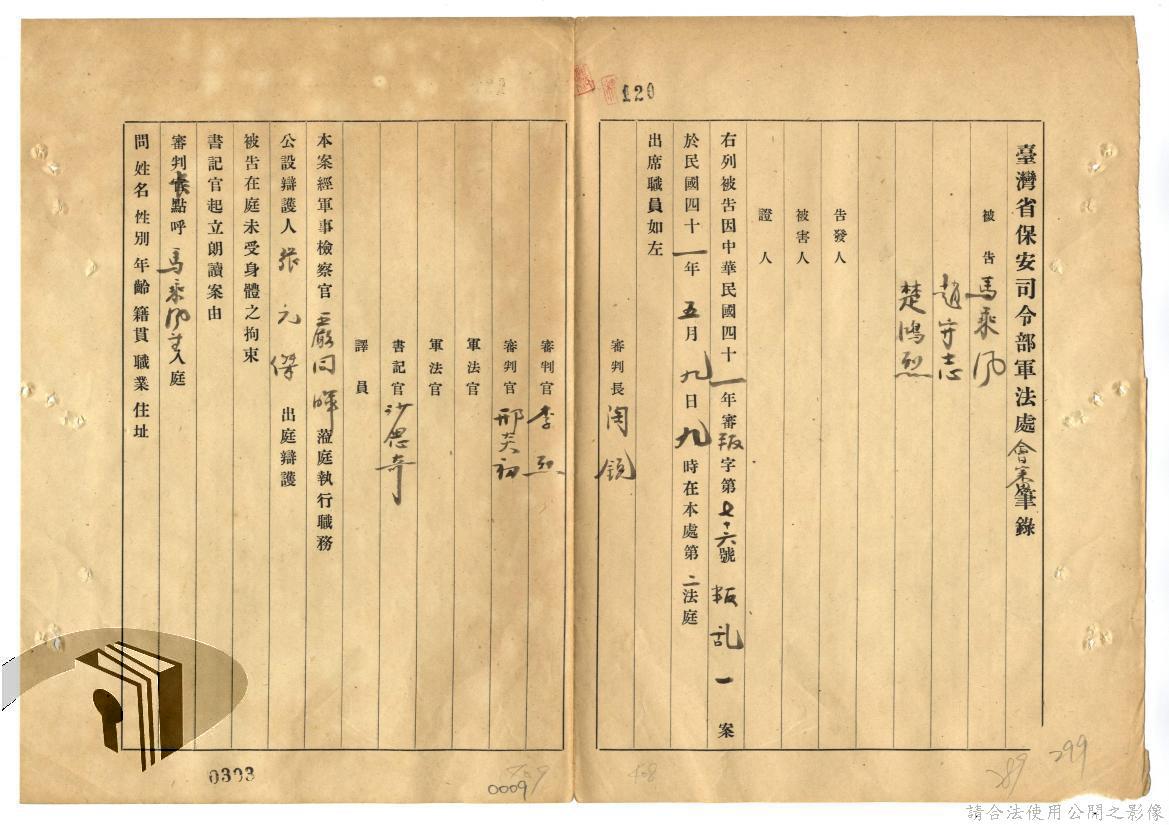 120
臺灣省保安司令部軍法處會審筆錄
被告 馬乘風
趙守志
楚鴻烈
告發人
被害人
證人
右列被告因中華民國四十一年審叛字第七十六號叛乱一案
於民國四十一年五月九日九時在本處第二法庭
出席職員如左
審判長 陶鎔
審判官 李烈
審判官 邢炎初
軍法官
軍法官
書記官 沙思奇
譯員
本案經軍事檢察官 嚴同暉 蒞庭執行職務
公設辯護人 張元傑 出庭辯護
被告在庭未受身體之拘束
書記官起立朗讀案由
審判長點呼 馬乘風等入庭
問 姓名 性別 年齡 籍貫 職業 住址
0303
0009
408
289
299
請合法使用公開之影像